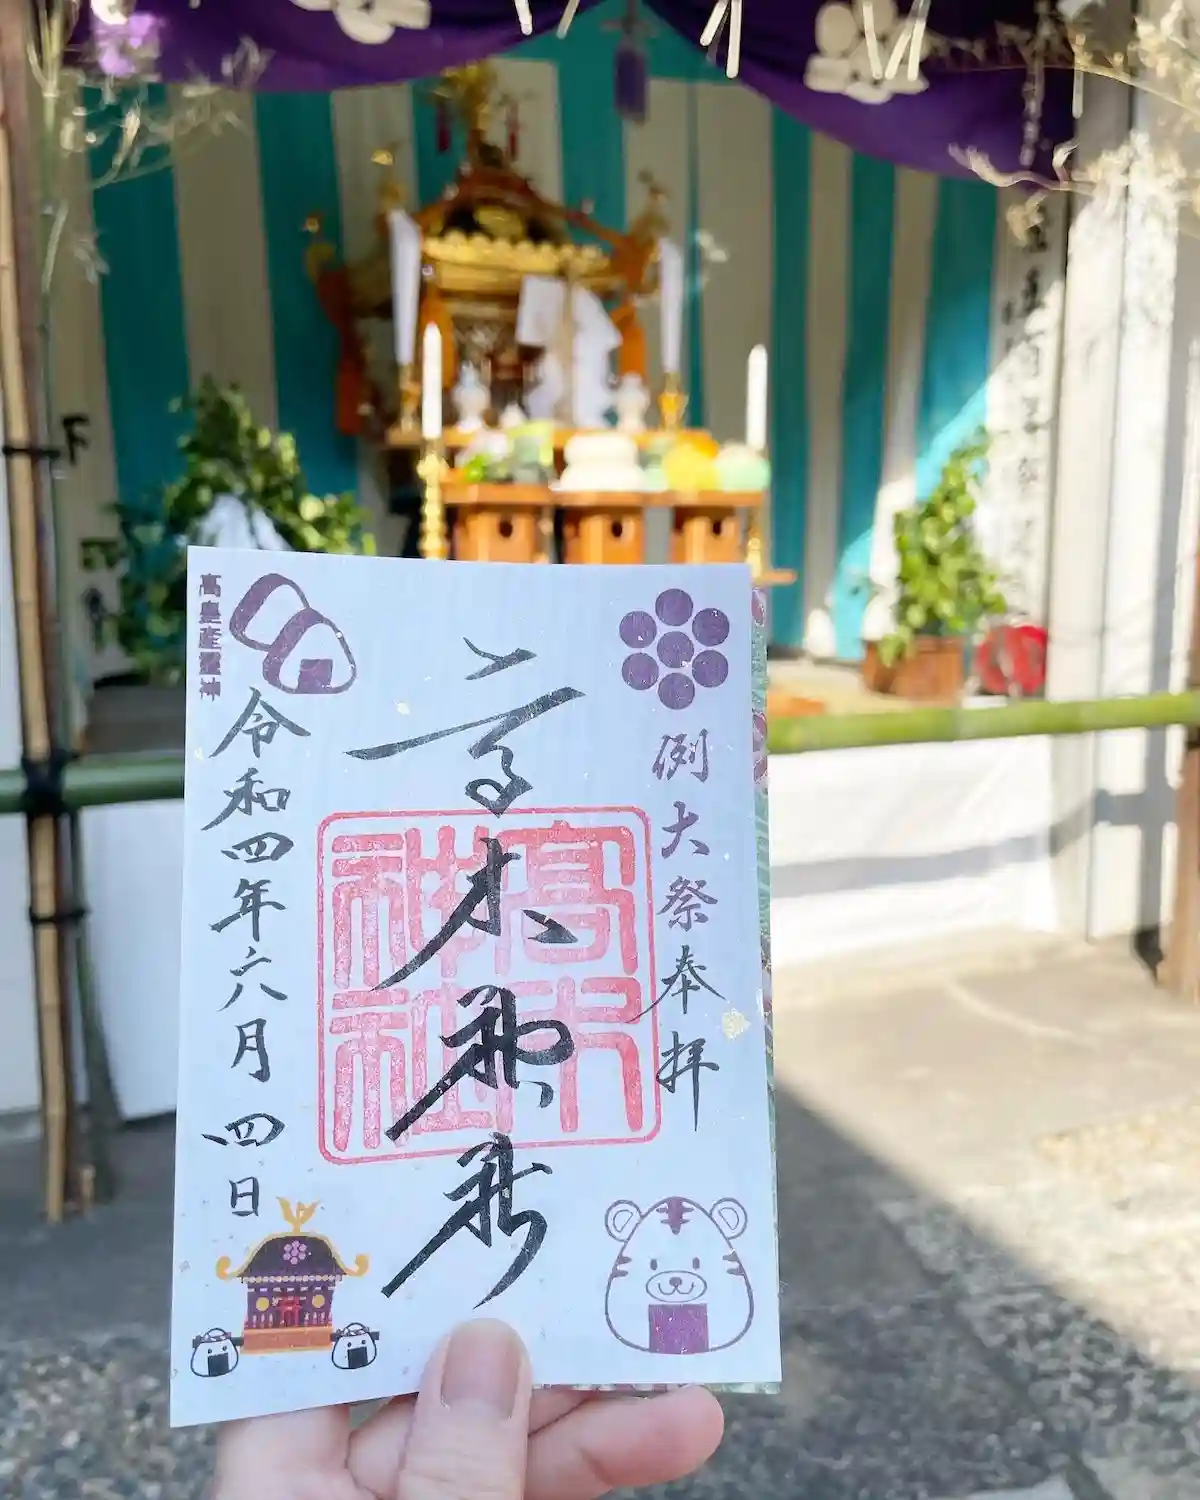 例大祭奉拝
高木神社
高木神社
高皇産靈神
令和四年六月四日